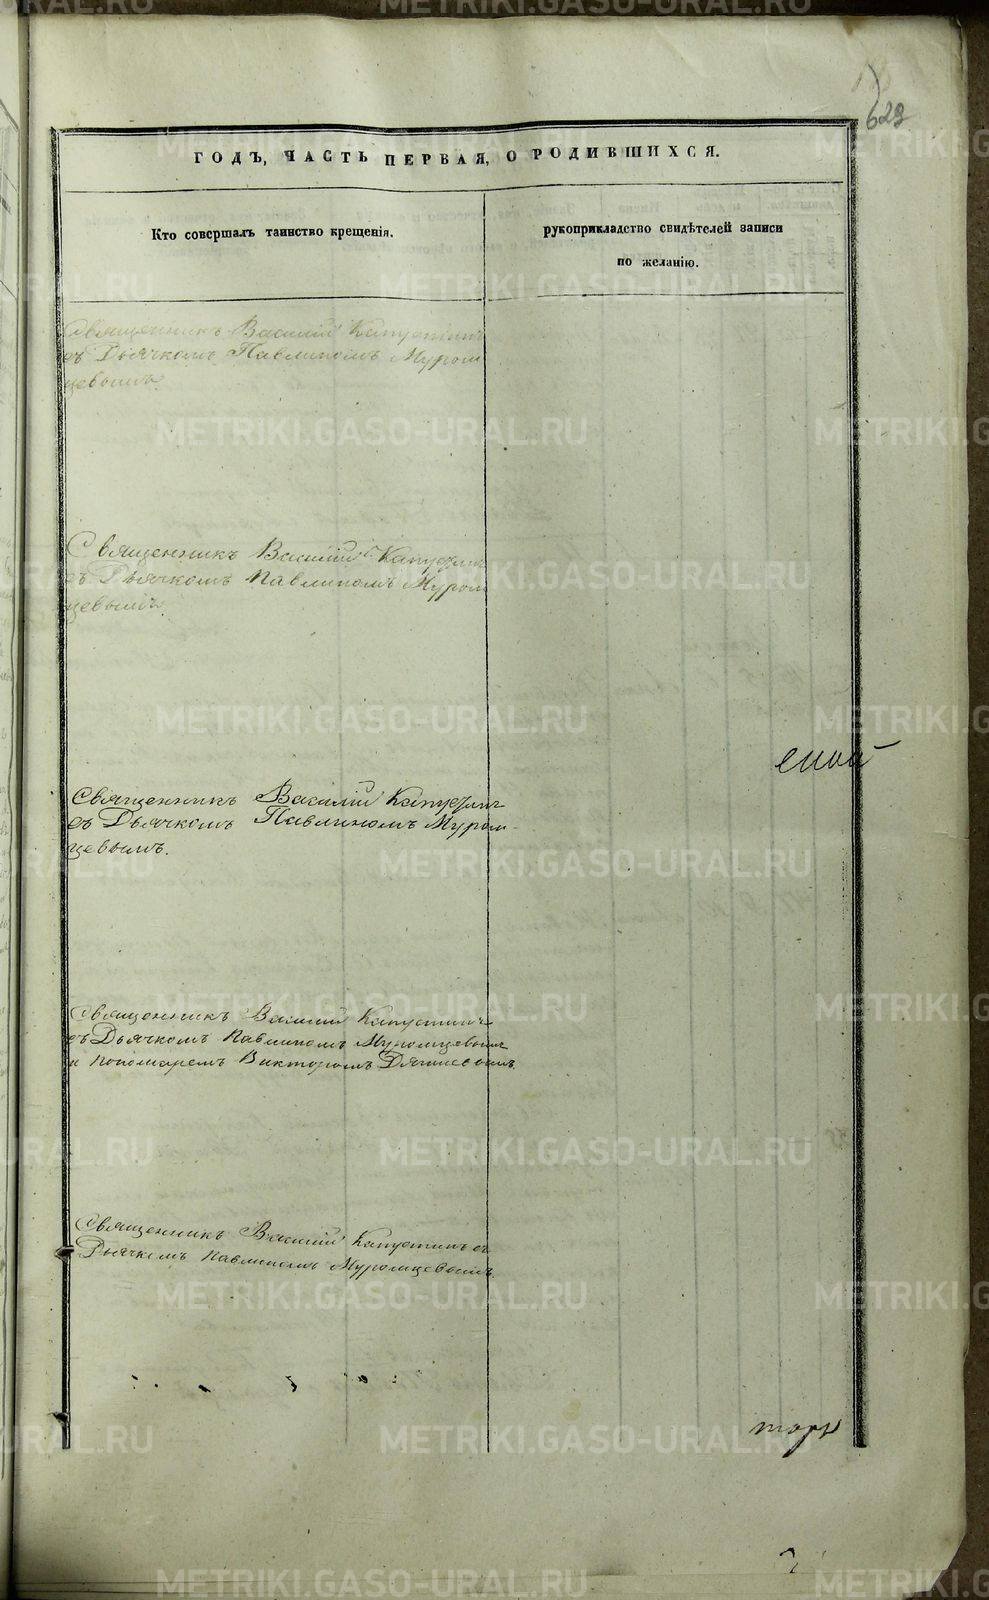 629
ГОДЪ, ЧАСТЬ ПЕРВАЯ, О РОДИВШИХСЯ.
Кто совершалъ таинство крещенія.
рукоприкладство свидѣтелей записи
по желанію.
Священникъ Василій Капустинъ
съ Дьячкомъ Павлиномъ Муром
цевымъ.
Священникъ Василій Капустинъ
съ Дьячкомъ Павлиномъ Муром
цевымъ.
Священникъ Василій Капустинъ
съ Дьячкомъ Павлиномъ Муром-
цевымъ.
Священникъ Василій Капустинъ
съ Дьячкомъ Павлиномъ Муромцевымъ
и пономаремъ Викторомъ
Священникъ Василій Капустинъ съ
Дьячкомъ Павлиномъ Муромцевымъ.
METRIKI.GASO-URAL.RU